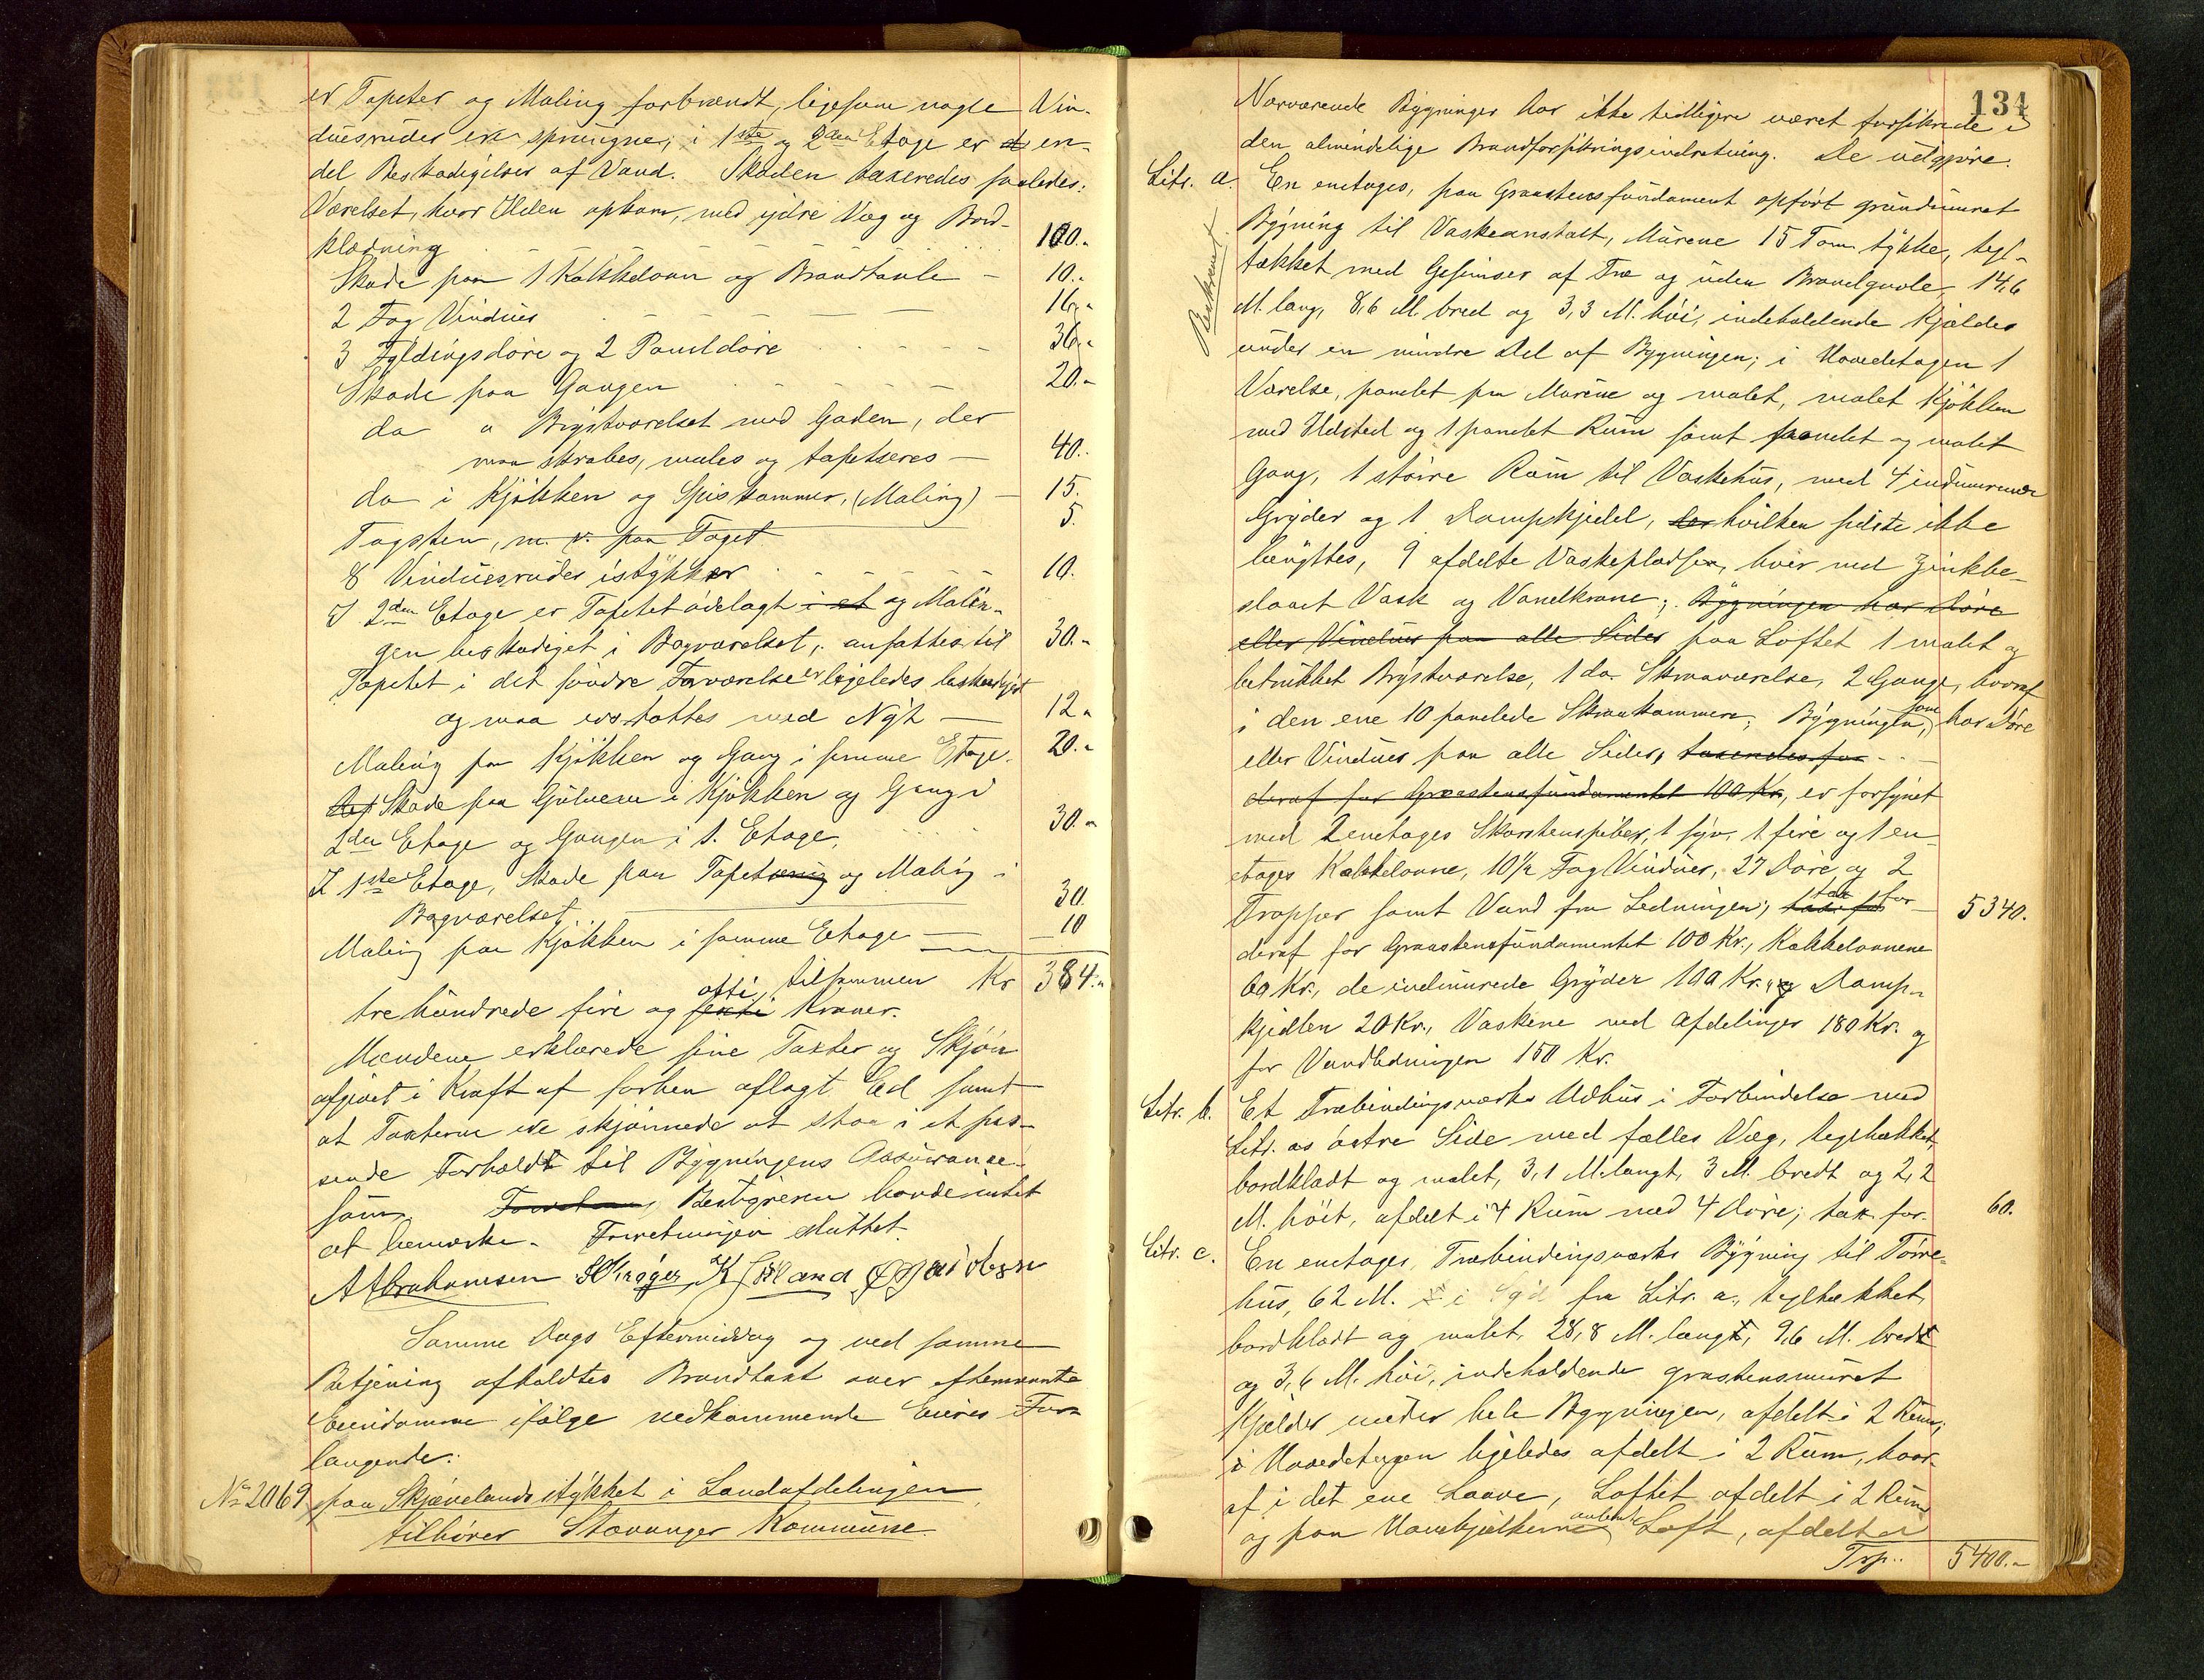 er Tapeter og Maling forbrændt, ligesom nogle Vin-
duesruder ere sprungne; i 1ste og 2den Etage er en
del Beskadigelser af Vand. Skaden taxeredes saaledes:
Værelset, hvor Ilden opkom, med ydre Væg og Bord-
klædning 100.-
Skade paa 1 Kakkelovn og Brandtavle - 10.-
2 Fag Vinduer 16.-
3 Fyldingsdøre og 2 Paneldøre 36.-
Skade paa Gangen 20.-
do " Brystværelset mod Gaden, der
maa skrabes, males og tapetseres - 40.-
do i Kjøkken og Spiskammer, (Maling) - 15.
Tagsten, m. v. paa Taget 5.
8 Vinduesruder istykker 10.
I 2den Etage er Tapetet ødelagt i et og Malin-
gen beskadiget i Bagværelset, ansattes til 30.-
Tapetet i det søndre Forværelse er ligeledes beskadiget
og maa erstattes med Nyt - 12.-
Maling paa Kjøkken og Gang i samme Etage. 20.-
Skade paa Gulvene i Kjøkken og Gang i
2den Etage og Gangen i 1. Etage. 30.-
I 1ste Etage, Skade paa Tapetsering og Maling i
Bagværelset 30.
Maling paa Kjøkken i samme Etage - 10
tilsammen Kr 384.-
tre hundrede fire og otti Kroner.
Mændene erklærede sine Taxter og Skjøn
afgivet i Kraft af forhen aflagt Ed samt
at Taxterne ere skjønnede at staa i et pas-
sende Forhold til Bygningens Assurance-
sum. Bestyreren havde intet
at bemærke. Forretningen sluttet.
A Abrahamsen S Krøger K Esland O Jacobsen
Samme Dags Eftermiddag og ved samme
Betjening afholdtes Brandtaxt over efternævnte
Eiendomme ifølge vedkommende Eieres For-
langende:
No 2069 paa Skjævelandsstykket i Landafdelingen
tilhører Stavanger Kommune.
134
Nærværende Bygninger har ikke tidligere været forsikrede i
den almindelige Brandforsikringsindretning. De udgjøre:
Litr. a. En enetages, paa Graastensfundament opført grundmuret
Bekræft
Bygning til Vaskeanstalt, Murene 15 Tom. tykke, tegl-
tækket med Gesimser af Træ og uden Brandgavle, 14,6
M. lang, 8,6 M. bred og 3,3 M. høi, indeholdende Kjælder
under en mindre Del af Bygningen; i Hovedetagen 1
Værelse, panelet paa Murene og malet, malet Kjøkken
med Ildsted og 1 panelet Rum samt panelet og malet
Gang, 1 større Rum til Vaskehus, med 4 indmurede
Gryder og 1 Dampkjedel, der hvilken sidste ikke
benyttes, 9 afdelte Vaskepladser, hver med Zinkbe-
slaaet Vask og Vandkrane; Bygningen har Døre
eller Vinduer paa alle Sider paa Loftet 1 malet og
betrukket Brystværelse, 1 do. Skraaværelse, 2 Gange, hvoraf
i den ene 10 panelede Skraakammere; Bygningen, som har Døre
eller Vinduer paa alle Sider, taxeredes for
deraf for Graastensfundamentet 100 Kr, er forsynet
med 2 enetages Skorstenspiber, 1 syv, 1 fire og 1 en-
etages Kakkelovne, 10 1/2 Fag Vinduer, 27 Døre og 2
Trapper samt Vand fra Ledningen; tax for 5340.
deraf for Graastensfundamentet 100 Kr., Kakkelovnene
60 Kr., de indmurede Gryder 100 Kr., Damp-
kjedlen 20 Kr., Vaskene med Afdelinger 180 Kr. og
for Vandledningen 150 Kr.
Litr. b. Et Træbindingsværks Udhus i Forbindelse med
Litr. as østre Side med fælles Væg, tegltækket,
bordklædt og malet, 3,1 M. langt, 3 M. bredt og 2,2
M. høit, afdelt i 4 Rum med 4 Døre; tax for. 60.
Litr. c. En enetages Træbindingsværks Bygning til Tørre-
hus, 62 M. i Syd fra Litr. a., tegltækket,
bordklædt og malet, 28,8 M. langt, 9,6 M. bredt
og 3,6 M. høi, indeholdende graastensmuret
Kjælder under hele Bygningen, afdelt i 2 Rum,
i Hovedetagen ligeledes afdelt i 2 Rum, hvor-
af i det ene Laave, Loftet afdelt i 2 Rum
og paa Hanebjælkerne Loft, afdelt i
Trp.. 5400.-